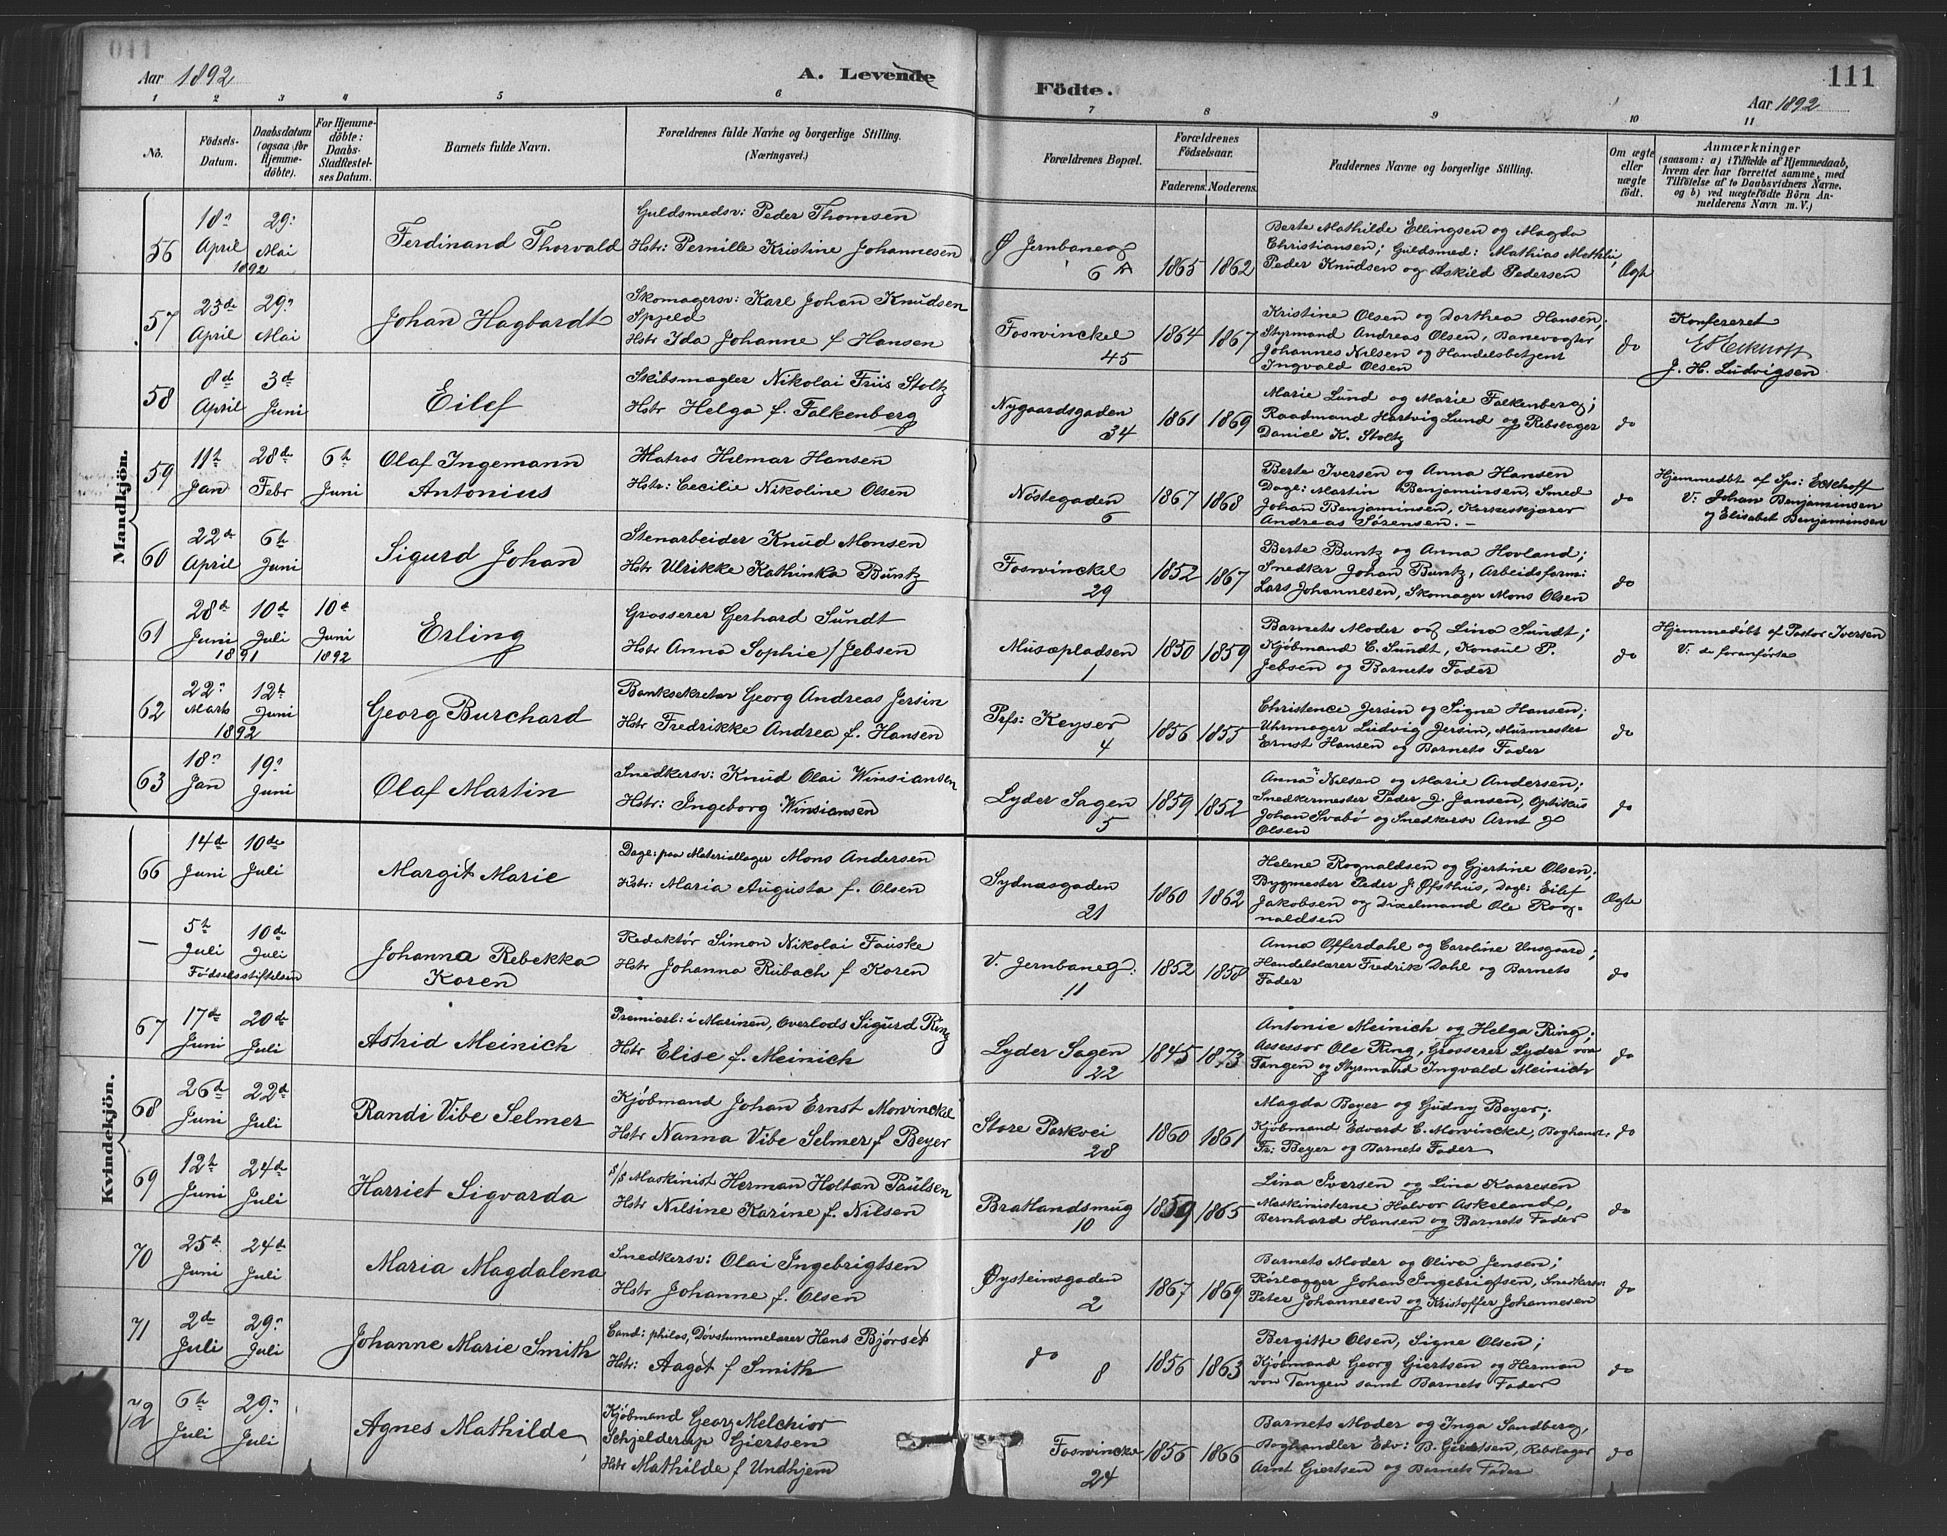 Aar 1892
A. Levende
Födte.
111
Aar 1892
1 2 3 4 5 6 7 8 9 10 11
No.
Födsels-Datum.
Daabsdatum (ogsaa for Hjemme-döbte).
For Hjemme-döbte: Daabs-Stadfæstel-ses Datum.
Barnets fulde Navn.
Forældrenes fulde Navne og borgerlige Stilling.
(Næringsvei.)
Forældrenes Bopæl.
Forældrenes Födselsaar.
Faderens. Moderens.
Faddernes Navne og borgerlige Stilling.
Om ægte eller uægte födt.
Anmærkninger
(saasom: a) i Tilfælde af Hjemmedaab,
hvem der har forrettet samme, med
Tilföielse af to Daabsvidners Navne.
og b) ved uægtefödte Börn An-
melderens Navn m. V.)
Mandkjön.
56
18n April 1892
29n Mai
Ferdinand Thorvald
Guldsmedsv: Peder Thomsen
Hstr: Pernille Kristine Johannesen
Ø Jernbaneg
6 A
1865 1862
Berte Mathilde Ellingsen og Magda
Christiansen; Guldsmed: Mathias
Peder Knudsen og Askild Pedersen
Ægte
57
23de April
29n Mai
Johan Hagbardt
Skomagersv: Karl Johan Knudsen
Spjeld
Hstr Ida Johanne f Hansen
Foswinckel
45
1864 1867
Kristine Olsen og Dorthea Hansen;
Styrmand Andreas Olsen, Banevogter
Johannes Nilsen og Handelsbetjent
Ingvald Olsen
do
Konfereret
E Eckhoff
J. H. Ludvigsen
58
8d April
3de Juni
Eilef
Skibsmægler Nikolai Friis Stoltz
Hstr Helga f. Falkenberg
Nygaardsgaden
34
1861 1869
Marie Lund og Marie Falkenberg;
Raadmand Hartvig Lund og Rebslager
Daniel K. Stoltz
do
59
11te Jan
28de Febr
6te Juni
Olaf Ingemann
Antonius
Matros Hilmar Hansen
Hstr: Cecilie Nikoline Olsen
Nöstegaden
6
1867 1868
Berte Iversen og Anna Hansen
Dagl: Martin Benjaminsen, Smed
Johan Benjaminsen,
Andreas Sørensen. –
do
Hjemmedöbt af Sps: Eckhoff
V: Johan Benjaminsen
og Elisabet Benjaminsen
60
22de April
6te Juni
Sigurd Johan
Stenarbeider Knud Monsen
Hstr Ulrikke Kathinka Buntz
Foswinckel
29
1852 1867
Berte Buntz og Anna Hovland;
Snedker Johan Buntz, Arbeidsform:
Lars Johannesen, Skomager Mons Olsen
do
61
28de Juni 1891
10de Juli
10de Juni 1892
Erling
Grosserer Gerhard Sundt
Hstr Anna Sophie f Jebsen
Museepladsen
1
1850 1859
Barnets Moder og Lina Sundt;
Kjöbmand C. Sundt, Konsul P.
Jebsen og Barnets Fader
do
Hjemmedøbt af Pastor Iversen
V: de foranførte
62
22n Marts 1892
12te Juni
Georg Burchard
Banksekretær Georg Andreas Jersin
Hstr Fredrikke Andrea f. Hansen
Prfs: Keyser
4
1856 1855
Christence Jersin og Signe Hansen;
Uhrmager Ludvig Jersin, Murmester
Ernst Hansen og Barnets Fader
do
63
18n Jan
19n Juni
Olaf Martin
Snedkersv: Knud Olai Winsiansen
Hstr: Ingeborg Winsiansen
Lyder Sagen
5
1859 1852
Anna Nilsen og Marie Andersen;
Snedkermester Peder J. Jansen, Optikus
Johan Svabø og Snedkersv Arnt J
Olsen
do
Kvindekjön.
66
14de Juni
10de Juli
Margit Marie
Dagl: paa Materiallager Mons Andersen
Hstr: Maria Augusta f. Olsen
Sydnæsgaden
21
1860 1862
Helene Rognaldsen og Gjertine Olsen;
Bygmester Peder J. Øfsthus, Dagl: Eilef
Jakobsen og Dixelmand Ole Rog-
naldsen
Ægte
–
5te Juli
10de Juli
Fødselsstiftelsen
Johanna Rebekka
Koren
Redaktör Simon Nikolai Fauske
Hstr Johanna Rubach f Koren
V. Jernbaneg:
11
1852 1858
Anna Offerdahl og Caroline Unsgaard;
Handelslærer Fredrik Dahl og Barnets
Fader
do
67
17de Juni
20de Juli
Astrid Meinich
Premierl: i Marinen, Overlods Sigurd Ring
Hstr Elise f. Meinich
Lyder Sagen
22
1845 1873
Antonie Meinich og Helga Ring;
Assessor Ole Ring, Grosserer Lyder von
Tangen og Styrmand Ingvald Meinich
do
68
26de Juni
22de Juli
Randi Vibe Selmer
Kjöbmand Johan Ernst Mowinckel
Hstr Nanna Vibe Selmer f Beyer
Store Parkvei
28
1860 1861
Magda Beyer og Gudny Beyer;
Kjöbmand Edvard C. Mowinckel, Boghandl.
Fr: Beyer og Barnets Fader
do
69
12te Juni
24de Juli
Harriet Sigvarda
s/s Maskinist Herman Holtan Paulsen
Hstr Nilsine Karine f. Nilsen
Bratlandsmug
10
1859 1865
Lina Iversen og Lina Kaaresen
Maskinisterne Halvor Askeland,
Bernhard Hansen og Barnets Fader
do
70
25de Juni
24de Juli
Maria Magdalena
Snedkersv: Olai Ingebrigtsen
Hstr Johanne f. Olsen
Øysteinsgaden
2
1867 1869
Barnets Moder og Oliva Jensen;
Rörlægger Johan Ingebrigtsen, Snedkersv:
Peter Johannesen og Kristoffer Johannesen
do
71
2de Juli
29n Juli
Johanne Marie Smith
Cand: philos, Døvstummelærer Hans Bjørset
Hstr: Aagot f Smith
do
8
1856 1863
Bergitte Olsen, Signe Olsen;
Kjöbmand Georg Giertsen og Herman
von Tangen samt Barnets Fader
do
72
6te Juli
29n Juli
Agnes Mathilde
Kjöbmand Georg Melchior
Schjelderup Giertsen
Hstr Mathilde f Undhjem
Foswinckel
24
1856 1866
Barnets Moder og Inga Sandberg,
Boghandler Edv: B. Giertsen, Rebslager
Arnt Giertsen og Barnets Fader
do